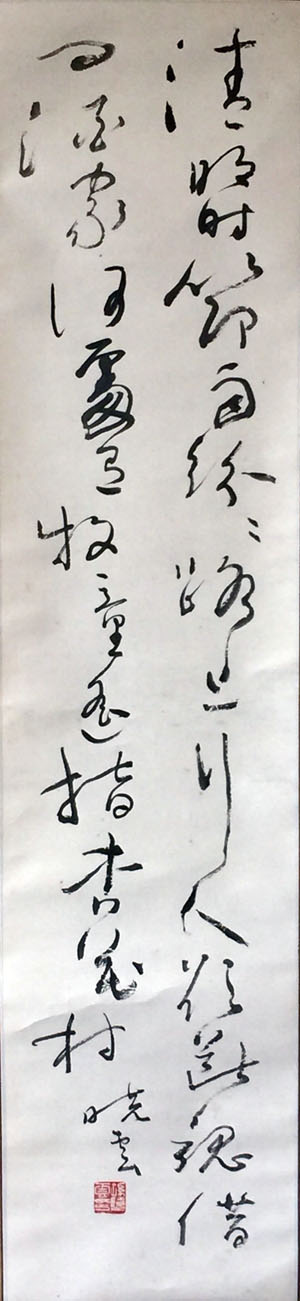 清明时節雨紛〻路上行人欲斷魂借
問酒家何處有牧童遙指杏花村
曉雲